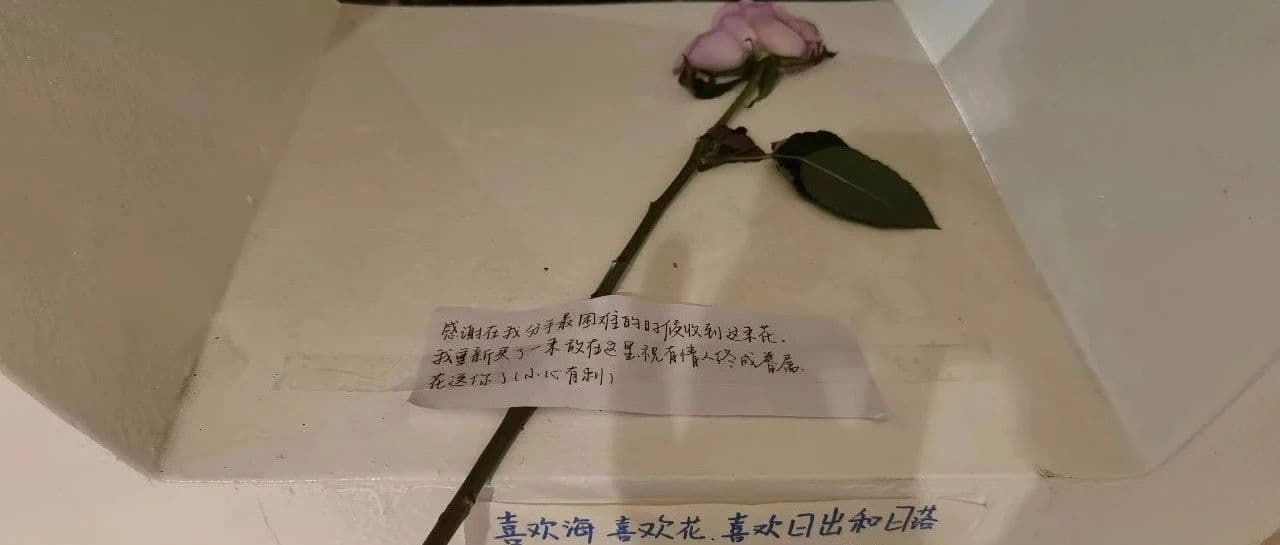 感谢在我分手最困难的时候收到这束花.
我重新买了一束放在这里.祝有情人终成眷属.
花送你了(小心有刺)
喜欢海 喜欢花.喜欢日出和日落